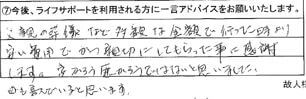 ⑦今後、ライフサポートを利用される方に一言アドバイスをお願いいたします。
ご親の葬儀など多額な金額で行った時より
安い費用でかつ親切にしてもらった事に感謝
します。安かろう悪かろうではないと思いました。
も喜んでいると思います。
故人様